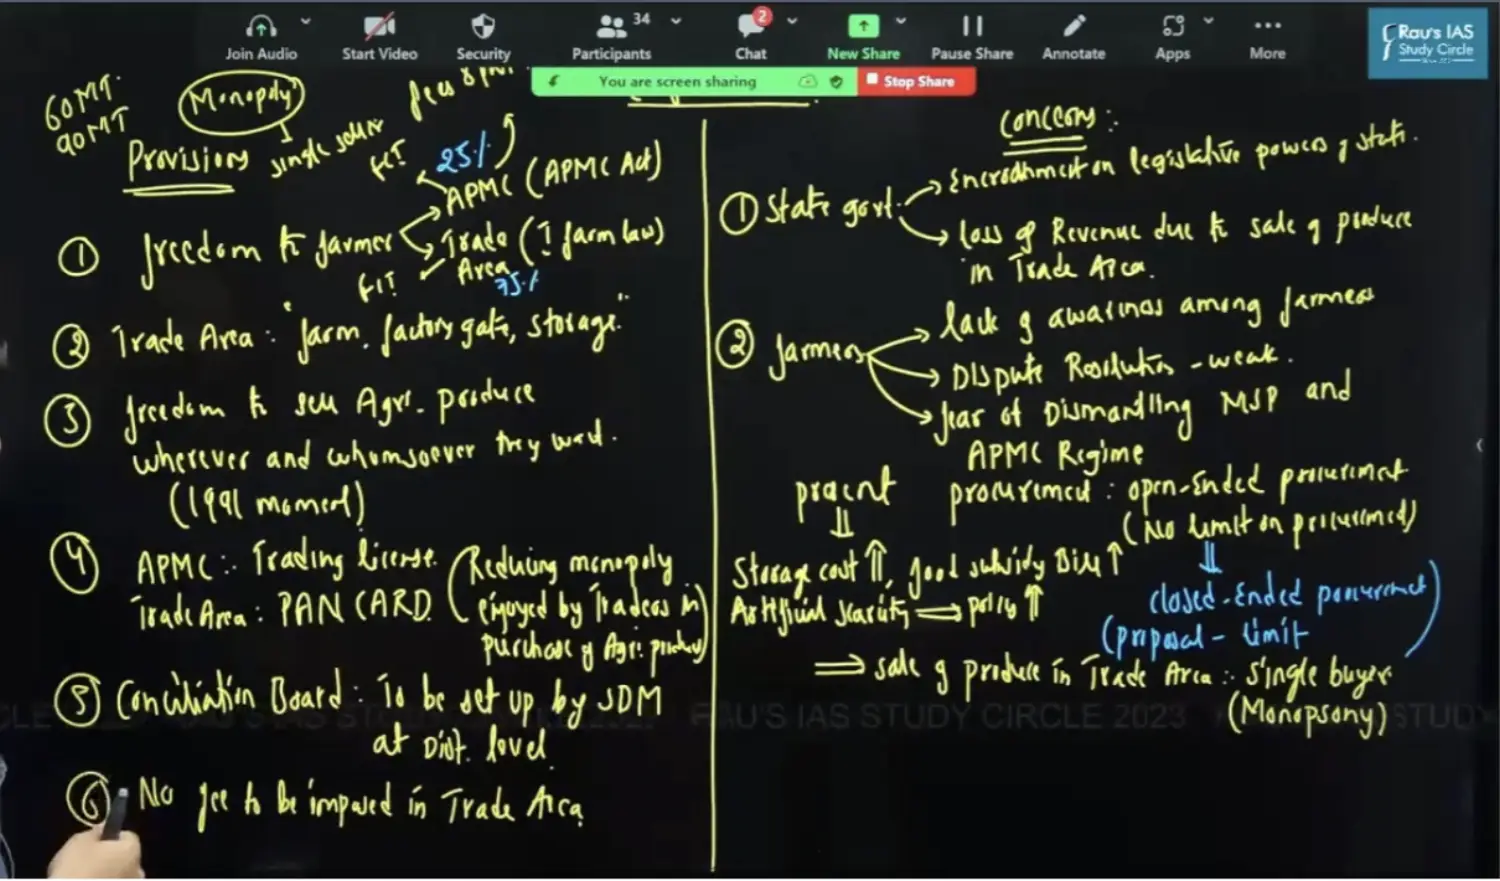 Join Audio
Start Video
Security
34
Participants
2
Chat
New Share
Pause Share
Annotate
Apps
More
Rau's IAS
Study Circle
You are screen sharing
Stop Share
60MT
90MT
Monopoly
single seller
Provisions
25%
① freedom to farmer
APMC (APMC Act)
Trade (I farm law)
Area
75%
② Trade Area: "farm, factory gate, storage."
③ freedom to sell Agri. produce
wherever and whomsoever they want.
(1991 moment)
④ APMC: Trading license.
Trade Area: PAN CARD.
(Reducing monopoly
enjoyed by Traders in
purchase of Agri. produce)
⑤ Conciliation Board: To be set up by SDM
at Dist. level.
⑥ No fee to be imposed in Trade Area
Concerns:
① State govt.
Encroachment on legislative powers of state.
loss of Revenue due to sale of produce
in Trade Area.
② farmers
lack of awareness among farmers
Dispute Resolution - weak.
fear of Dismantling MSP and
APMC Regime
present
procurement: open-Ended procurement
(No limit on procurement)
Storage cost ⇑, food subsidy Bill ↑
Artificial scarcity ⇒ prices ⇑
closed-Ended procurement
(proposal - limit
⇒ sale of produce in Trade Area: Single buyer
(Monopsony)
RAU'S IAS STUDY CIRCLE 2023